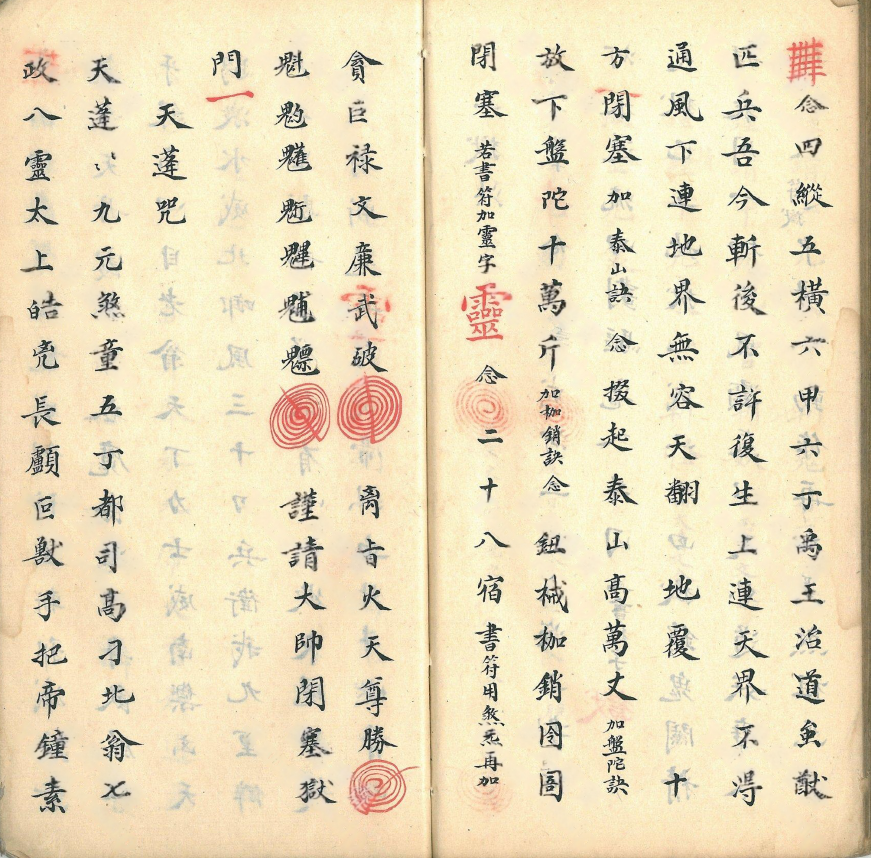 念四縱五橫六甲六丁禹王治道猷
匹兵吾今斬後不許復生上連天界不淂
通風下連地界無容天翻地覆十
方閉塞加泰山訣念掇起泰山高萬丈加盤陀訣
放下盤陀十萬斤加枷銷訣念鈕械枷銷囹圄
閉塞若書符加靈字靈念二十八宿書符用煞炁再加
貪巨禄文廉武破离旨火天尊勝
魁魒謹請大帥閉塞獄
門
天蓬咒
天蓬〻九元煞童五丁都司高刁北翁七
政八靈太上皓兇長顱巨獸手把帝鐘素